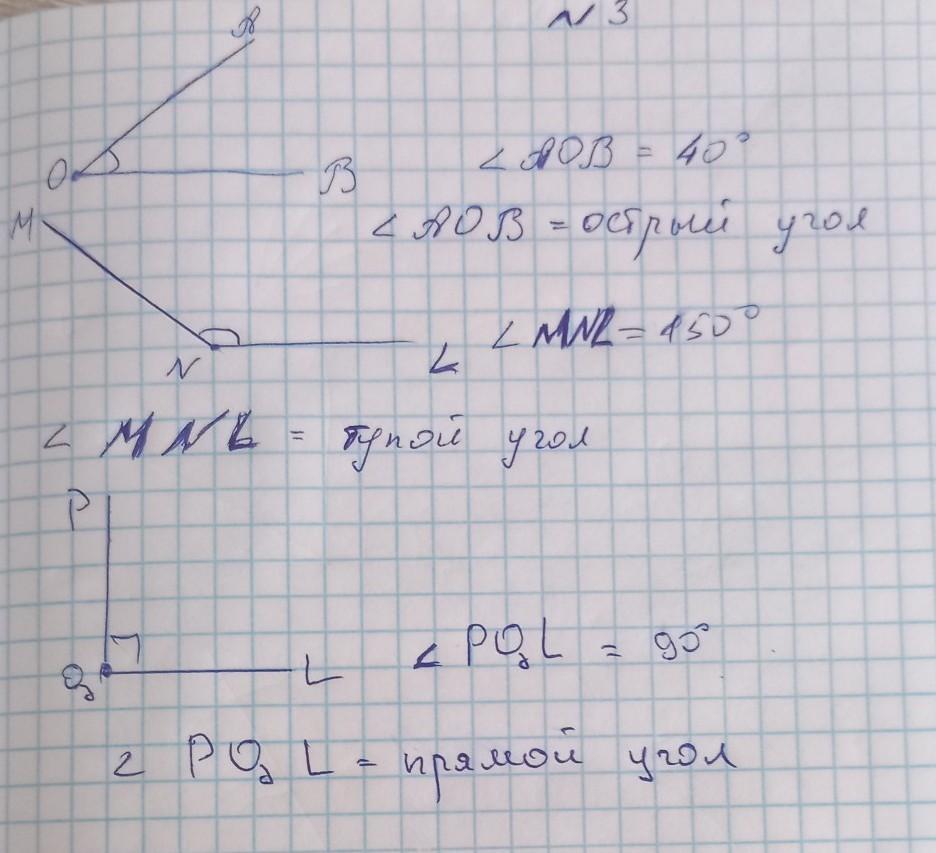 N 3
A
O
B
∠AOB = 40°
∠AOB = острый угол
M
N
L
∠MNL = 150°
∠MNL = тупой угол
P
Q
L
∠PQL = 90°
∠PQL = прямой угол